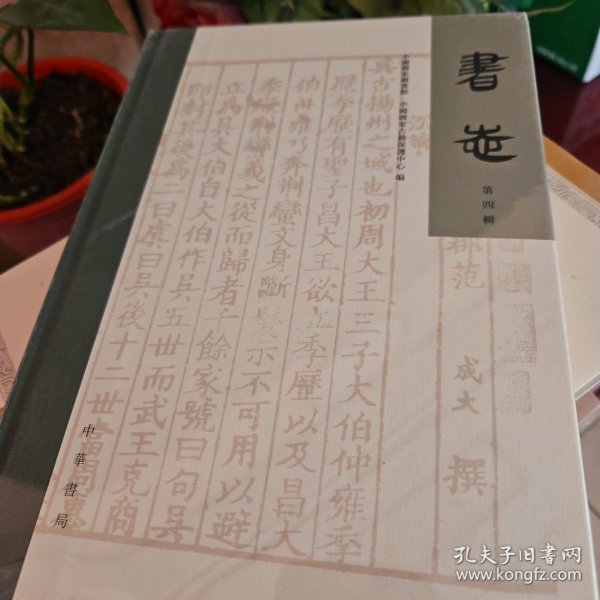 書志
第四輯
中國國家圖書館 中國國家古籍保護中心 編
郡范 成大 撰
吳古揚州之域也初周大王三子大伯仲雍季
歷季歷有聖子昌大王欲立季歷以及昌大
伯仲雍乃奔荆蠻文身斷髮示不可用以避
季歷荆蠻義之從而歸者千餘家號曰句吳
立為吳大伯自大伯作吳五世而武王克商
即封其後為二曰虞曰吳後十二世
中華書局
孔夫子旧书网
www.kongfz.com